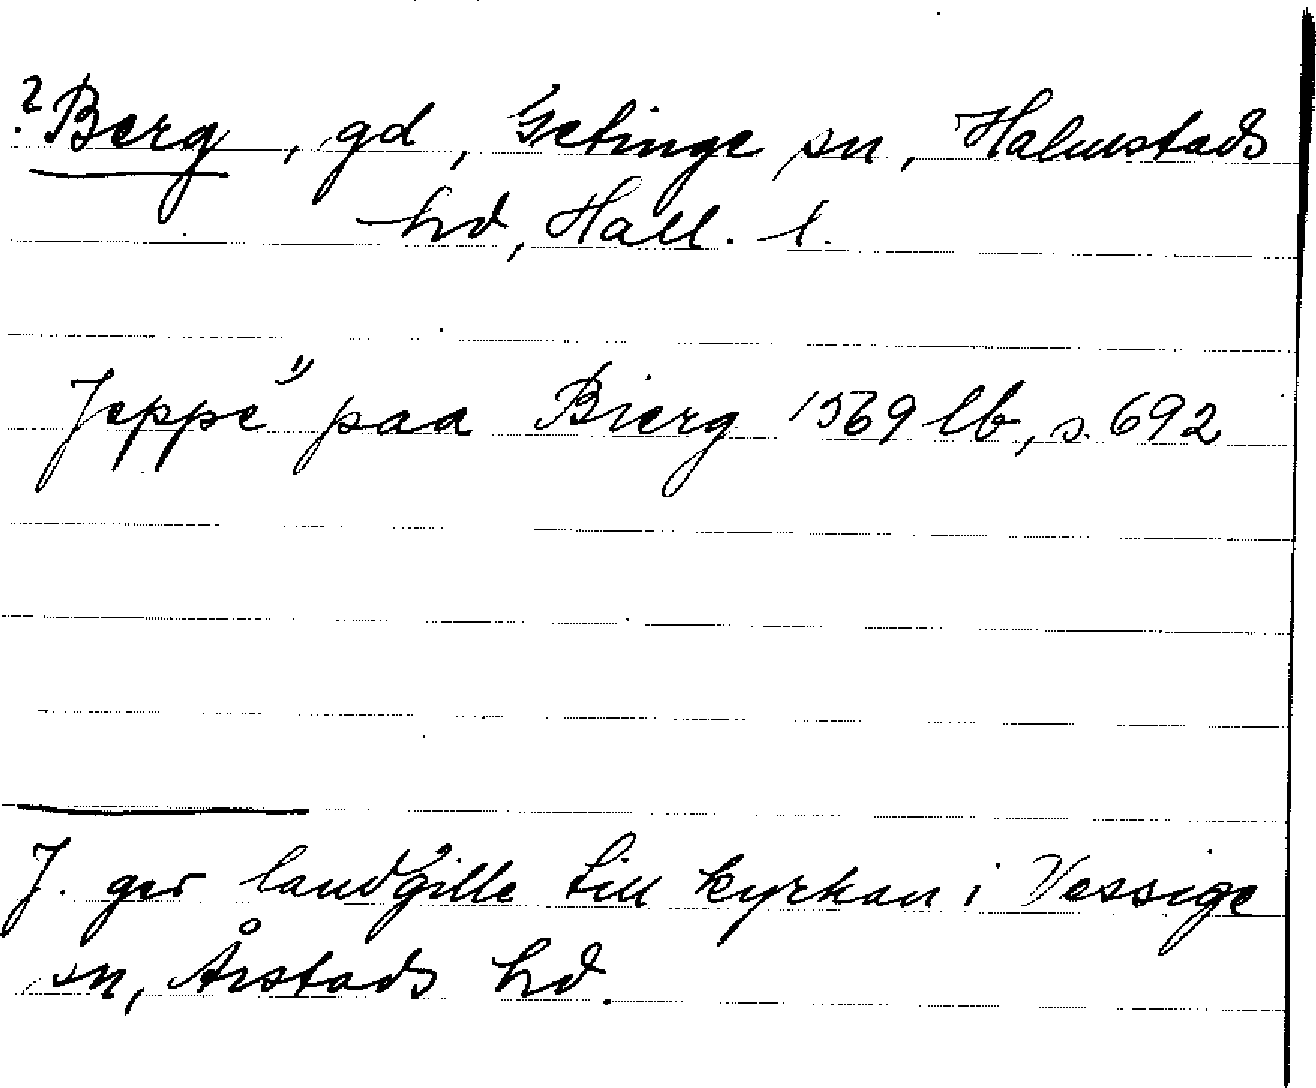 ? Berg, gd, Getinge sn, Halmstads
hd, Hall. l.
Jeppe" paa Bierg 1569 lb, s. 692
J. ger landgille till kyrkan i Vessige
sn, Årstads hd.